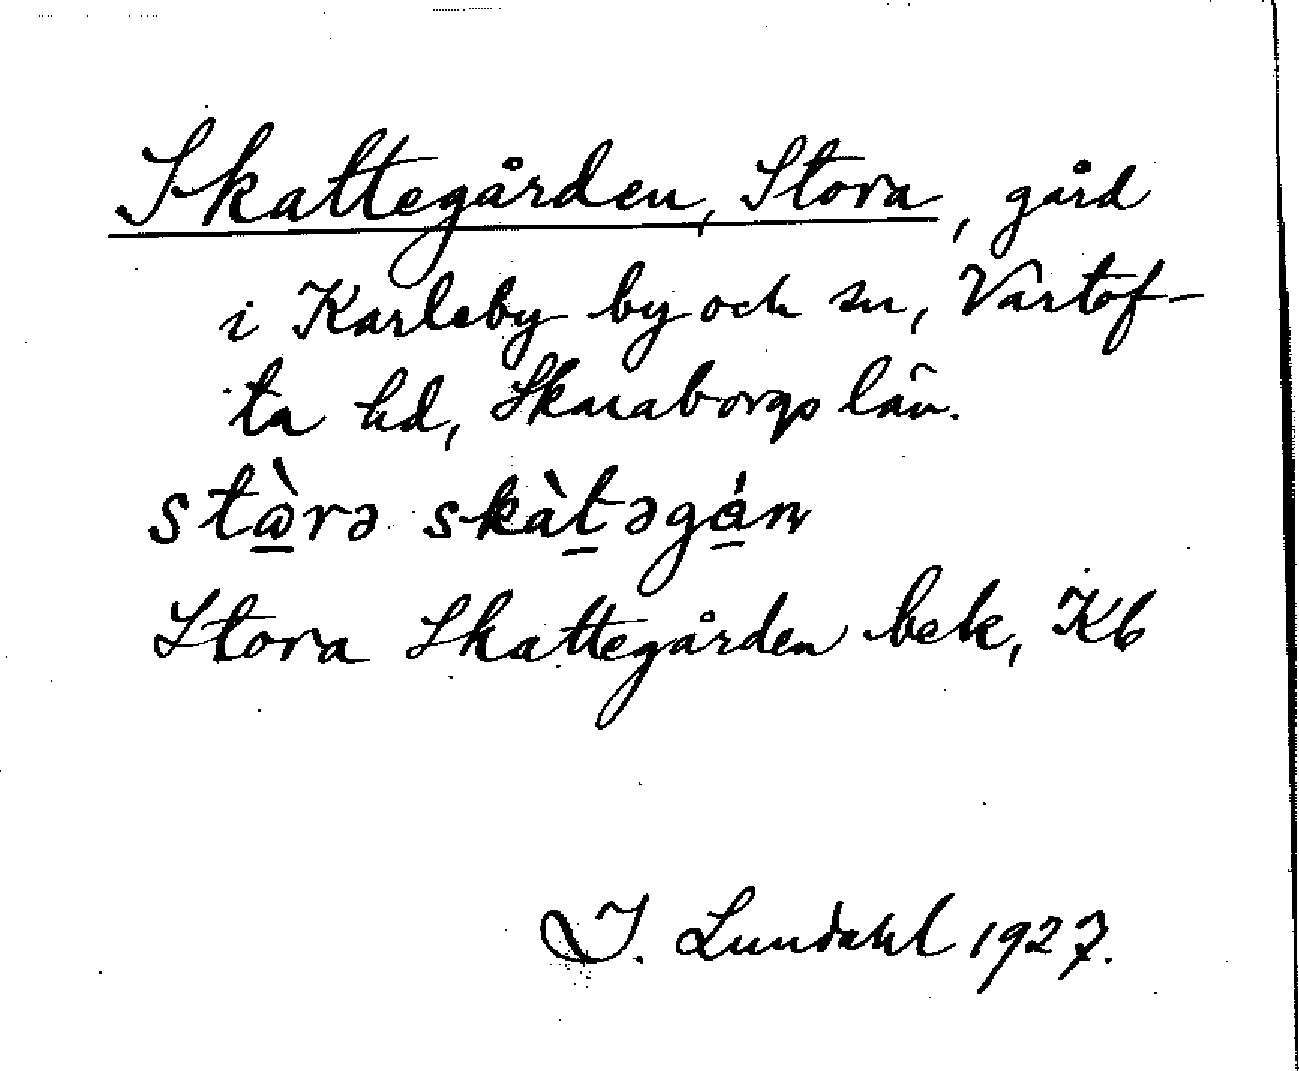 Skattegården, Stora, gård
i Karleby by och sn, Vartof-
ta hd, Skaraborgs län.
stɷ̠̀rə skàt̠əgɑ̠́n
Stora Skattegården bek, Kb
I. Lundahl 1927.